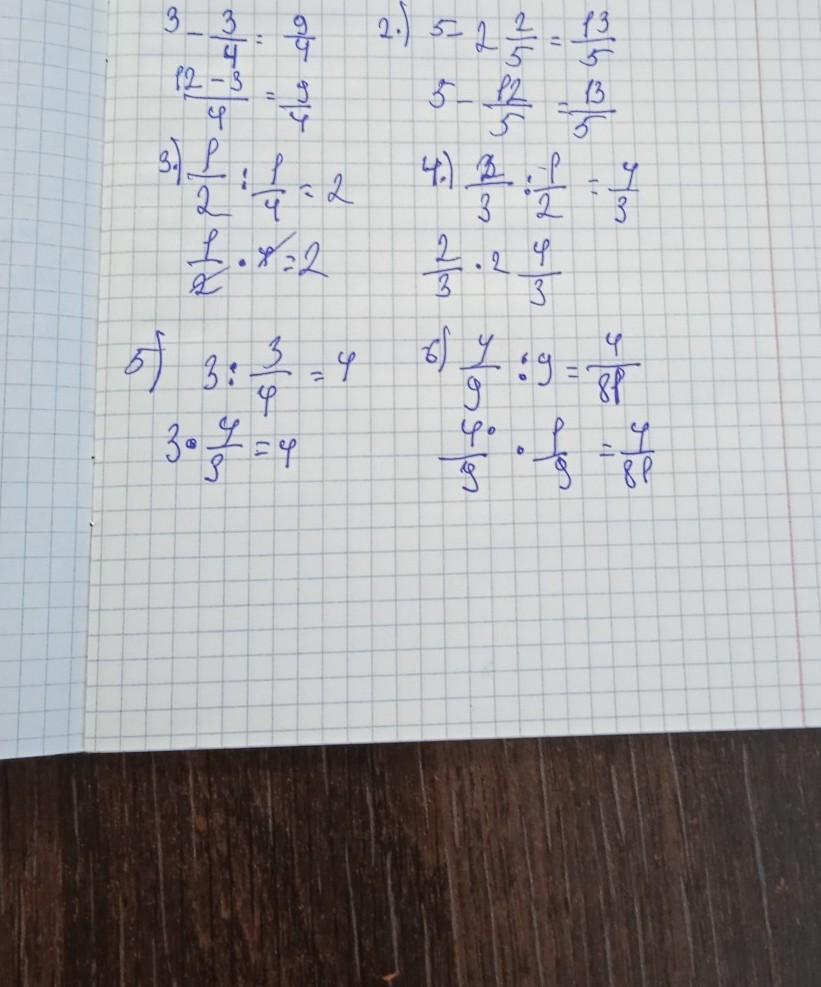 3 - 3/4 = 9/4
(12 - 3)/4 = 9/4
2.) 5 - 2 2/5 = 13/5
5 - 12/5 = 13/5
3.) 1/2 : 1/4 = 2
1/2 · 4 = 2
4.) 2/3 : 1/2 = 4/3
2/3 · 2 4/3
5) 3 : 3/4 = 4
3 · 4/3 = 4
6) 4/9 : 9 = 4/81
4/9 · 1/9 = 4/81